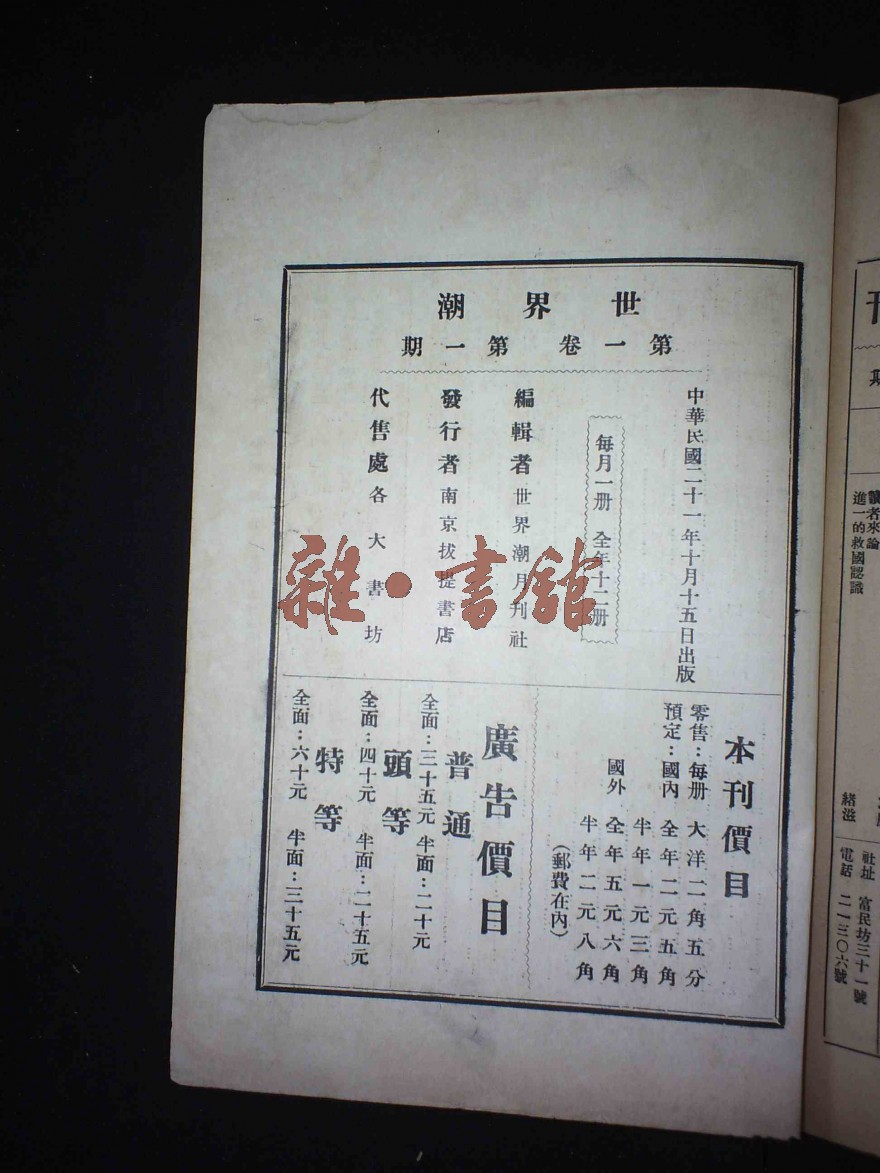 世界潮
第一卷 第一期
中華民國二十一年十月十五日出版
每月一册 全年十二册
編輯者 世界潮月刊社
發行者 南京拔提書店
代售處 各大書坊
本刊價目
零售：每册 大洋二角五分
預定：國內 全年二元五角
半年一元三角
國外 全年五元六角
半年二元八角
（郵費在內）
廣告價目
普通
全面：三十五元 半面：二十元
頭等
全面：四十元 半面：二十五元
特等
全面：六十元 半面：三十五元
雜·書舘
刊
期
讀者來論
進一的救國認識
緒滋
社址 富民坊三十一號
電話 二一三〇六號